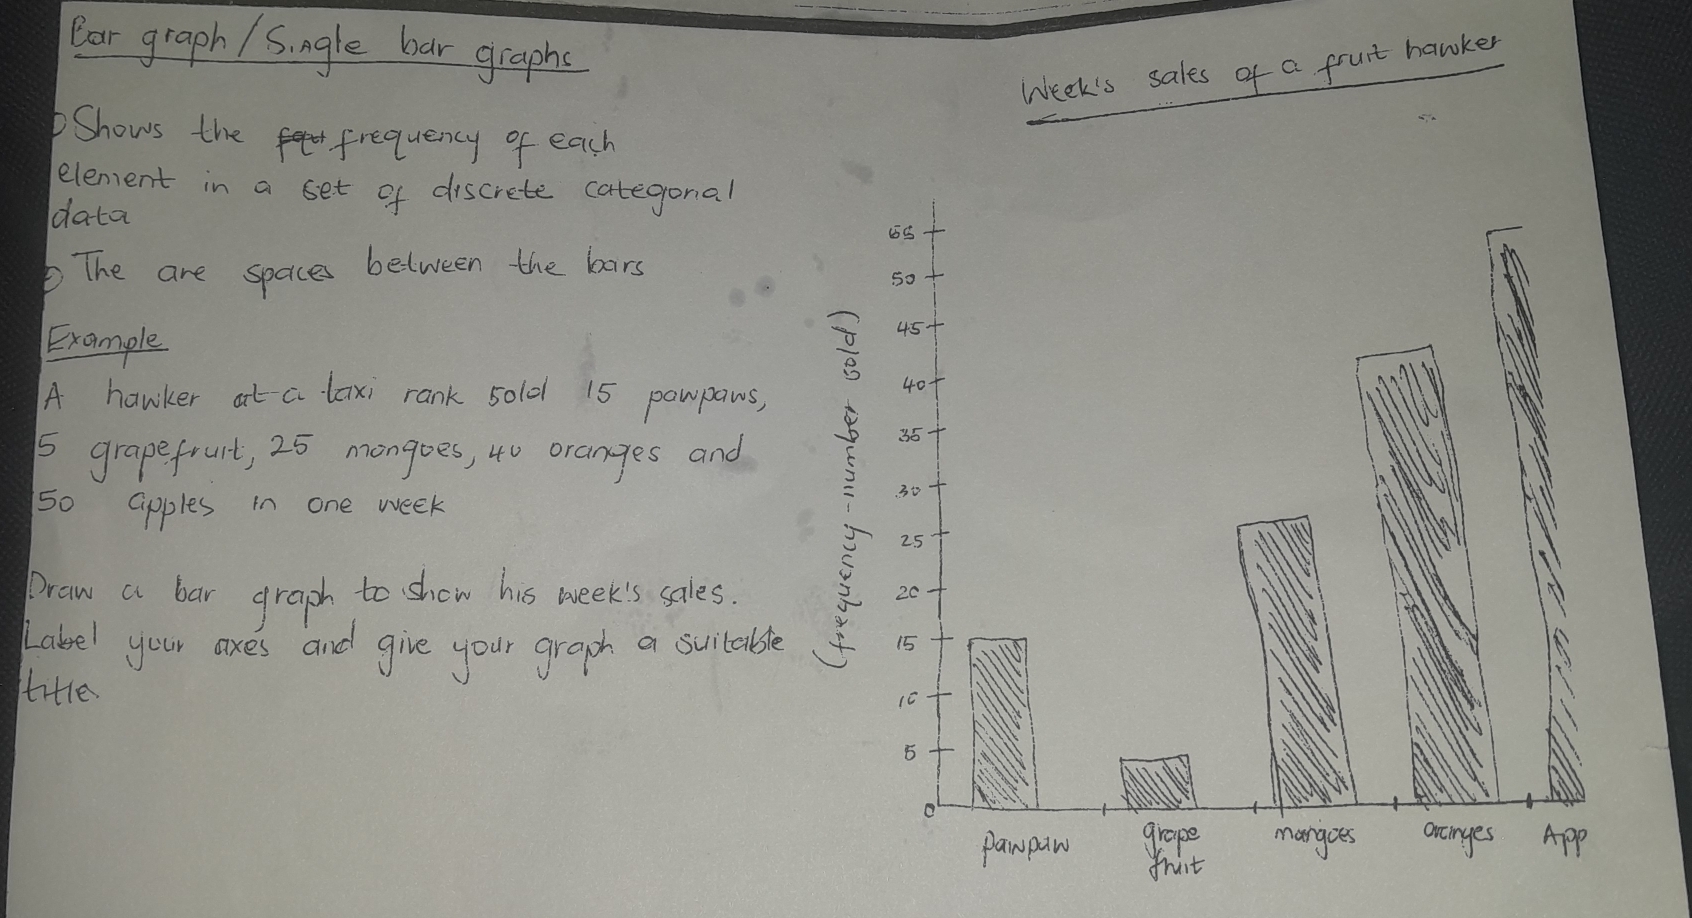 Bar graph / Single bar graphs
Shows the frequency of each
element in a set of discrete categorial
data
The are spaces between the bars
Example
A hawker at a taxi rank sold 15 pawpaws,
5 grapefruit, 25 mangoes, 40 oranges and
50 apples in one week
Draw a bar graph to show his week's sales.
Label your axes and give your graph a suitable
title.
Week's sales of a fruit hawker
(frequency - number sold)
55
50
45
40
35
30
25
20
15
10
5
0
Pawpaw
grape
fruit
mangoes
oranges
App